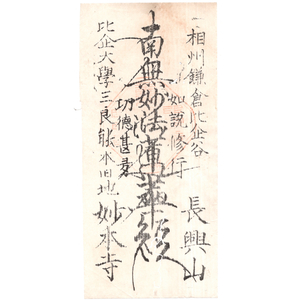 相州鎌倉比企谷
長興山
如説修行
南無妙法蓮華経
功徳甚多
比企大學三良能本旧地
妙本寺